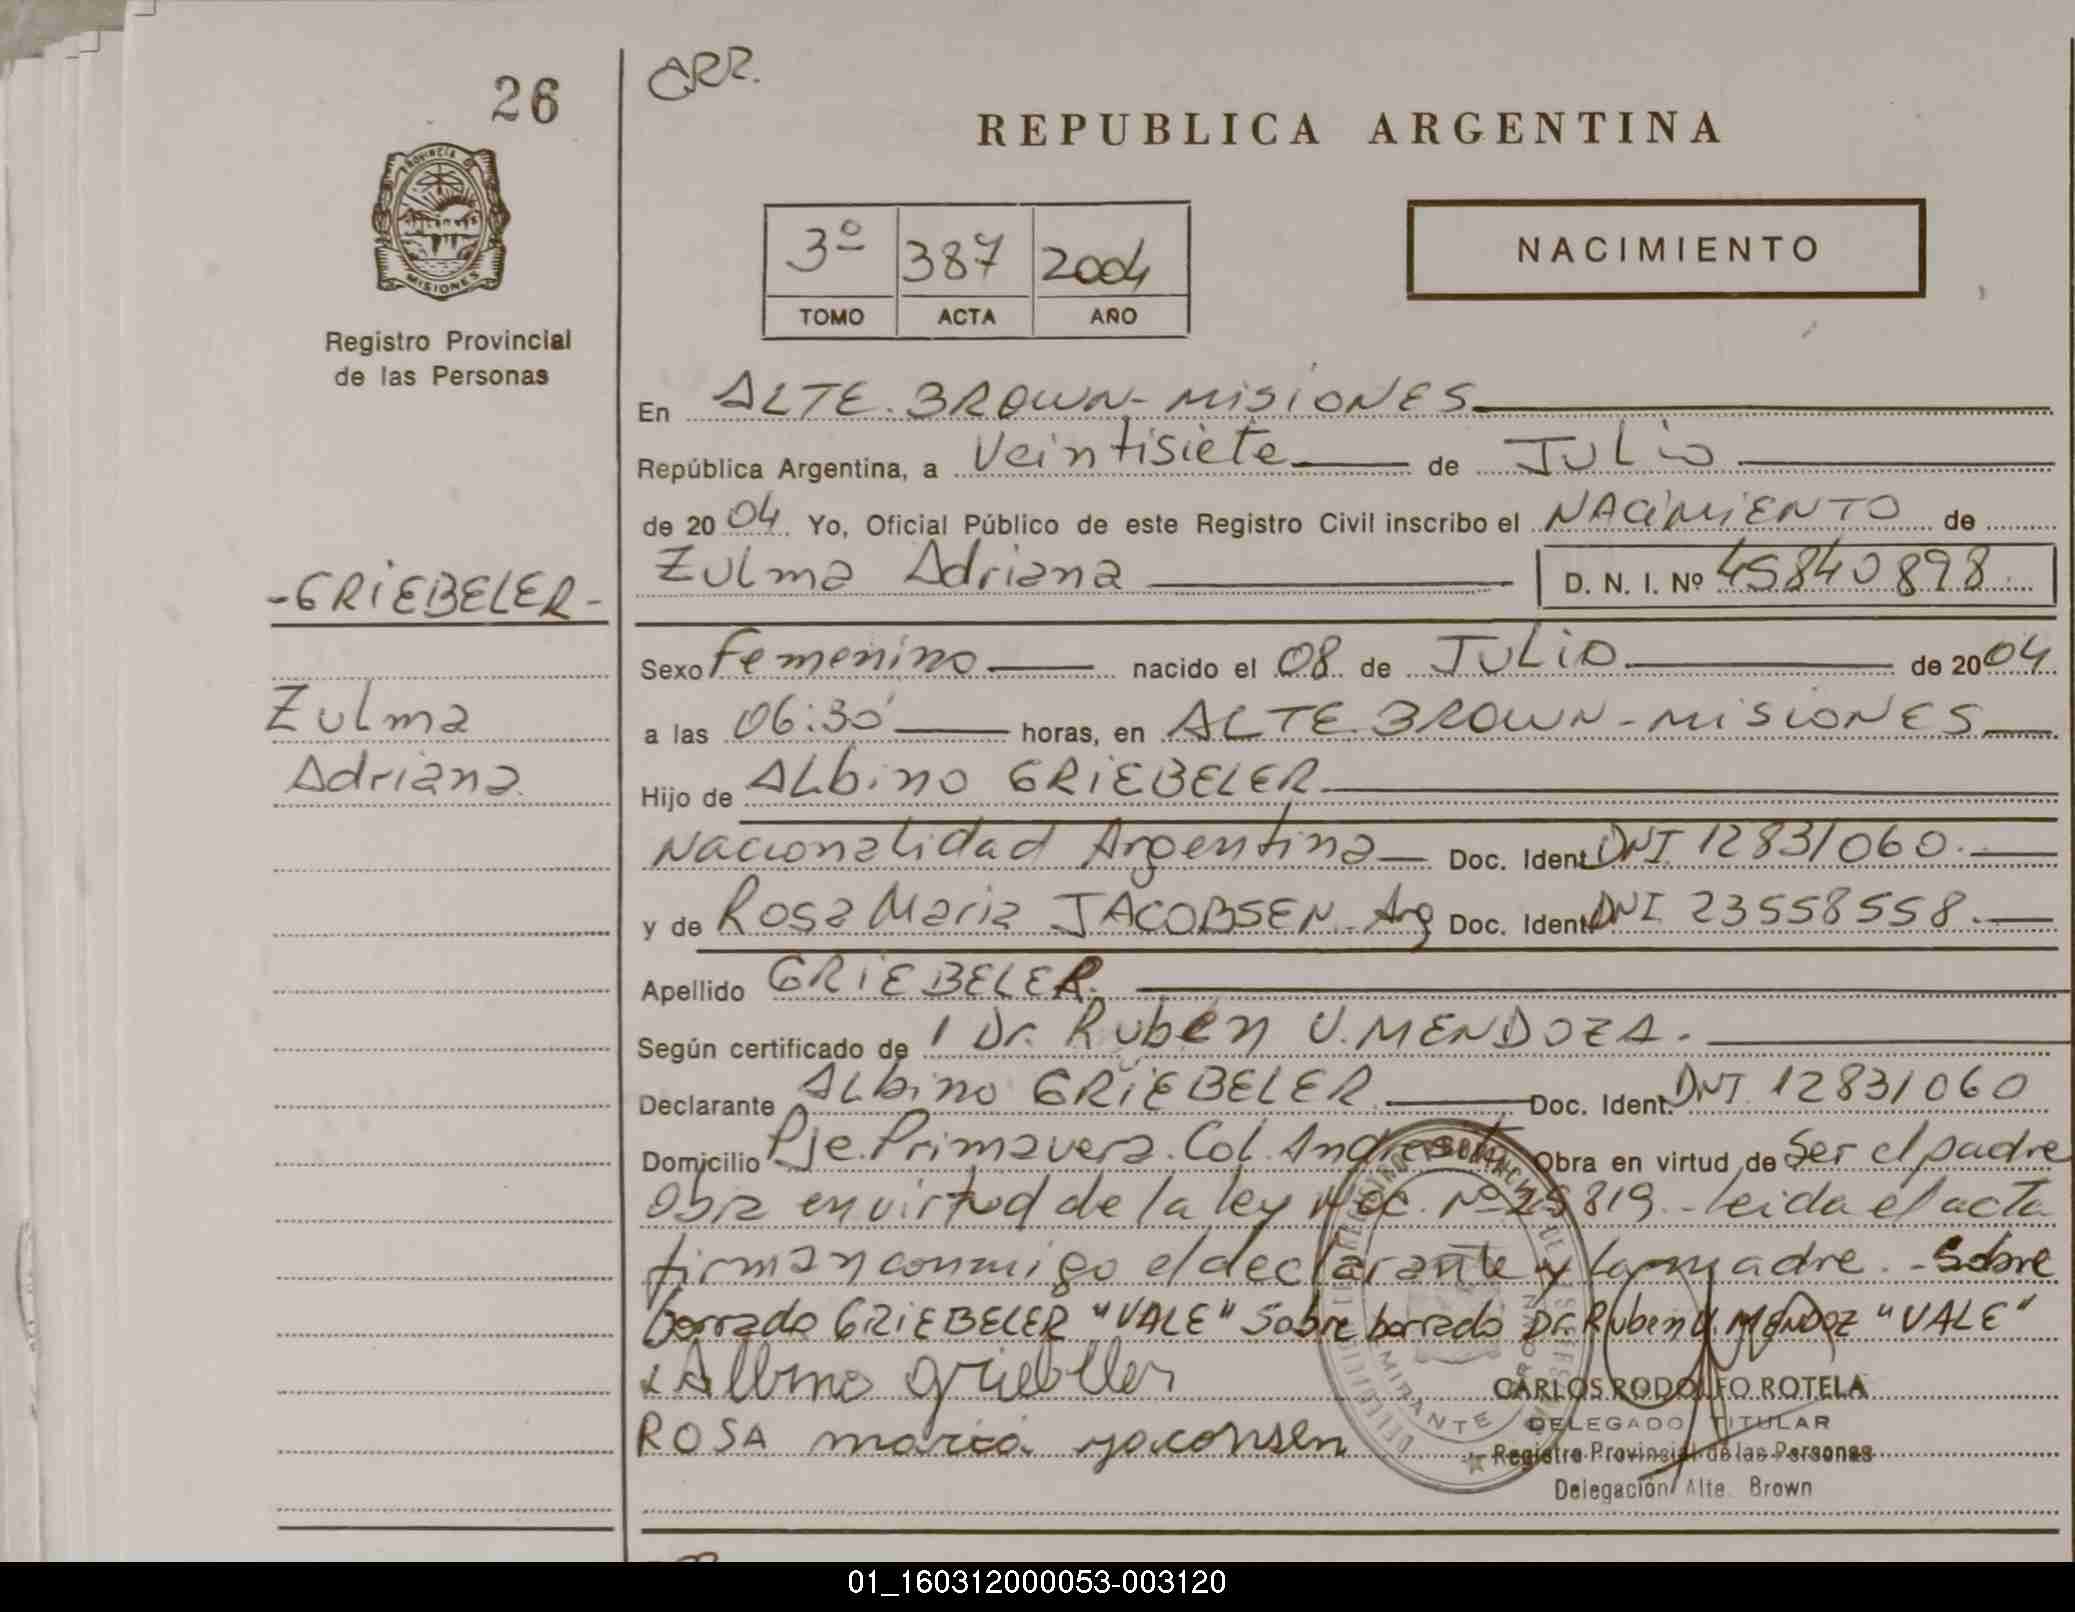 26
CRR.
REPUBLICA ARGENTINA
PROVINCIA DE
MISIONES
3º 387 2004
TOMO ACTA AÑO
NACIMIENTO
Registro Provincial
de las Personas
En ALTE. BROWN - MISIONES
República Argentina, a Veintisiete de JULIO
de 2004. Yo, Oficial Público de este Registro Civil inscribo el NACIMIENTO de
-GRIEBELER-
Zulma Adriana D. N. I. Nº 45840898
Sexo Femenino nacido el 08 de JULIO de 2004
Zulma
a las 06:30 horas, en ALTE BROWN - MISIONES
Adriana
Hijo de ALbino GRIEBELER
Nacionalidad Argentina Doc. Ident DNI 12831060.
y de Rosa Maria JACOBSEN. Arg Doc. Ident DNI 23558558.
Apellido GRIEBELER.
Según certificado de Dr. Rubén U. MENDOZA.
Declarante ALbino GRIEBELER Doc. Ident. DNI 12831060
Domicilio Pje. Primavera. Col. Andresito Obra en virtud de Ser el padre
Obra en virtud de la ley Nac. Nº 25819 - leida el acta
firman conmigo el declarante y la madre. - Sobre
borrado GRIEBELER "VALE" Sobre borrado Dr. Ruben U. MENDOZ "VALE"
x Albino griebller
ROSA maria yaconsen
CARLOS RODOLFO ROTELA
DELEGADO TITULAR
Registro Provincial de las Personas
Delegación Alte. Brown
01_160312000053-003120